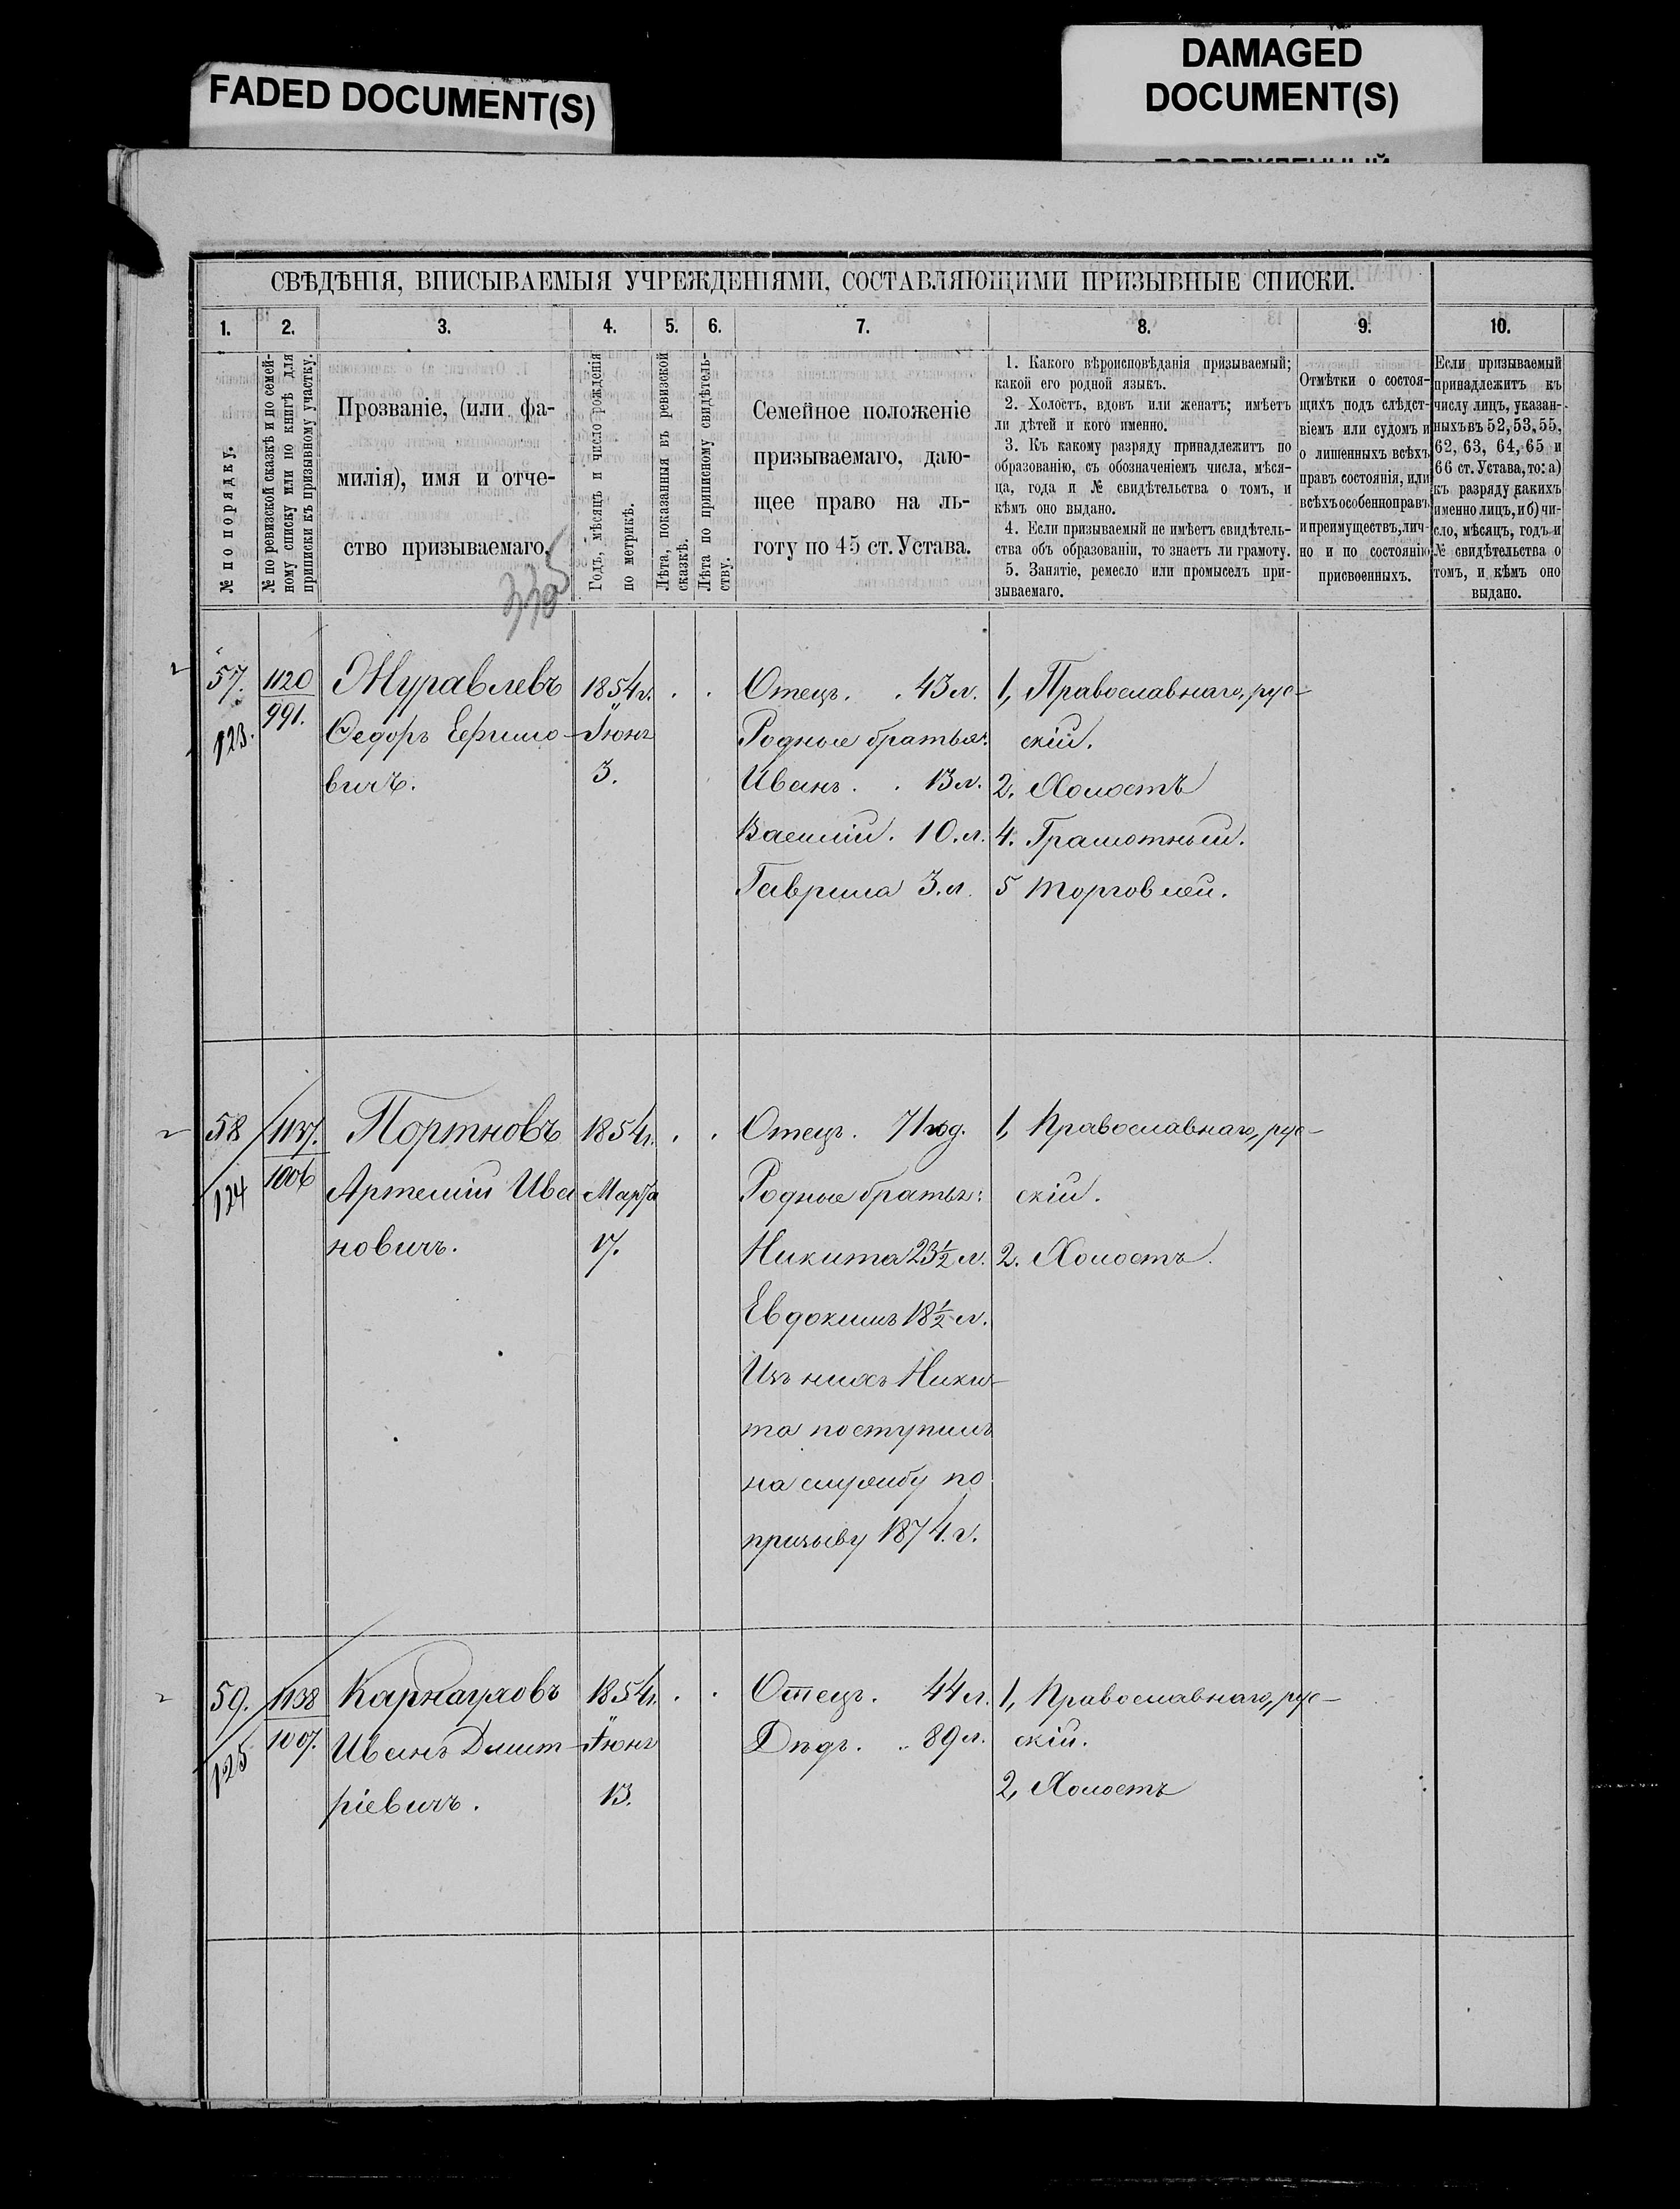 FADED DOCUMENT(S)
DAMAGED
DOCUMENT(S)
СВѢДѢНІЯ, ВПИСЫВАЕМЫЯ УЧРЕЖДЕНІЯМИ, СОСТАВЛЯЮЩИМИ ПРИЗЫВНЫЕ СПИСКИ.
1. 2. 3. 4. 5. 6. 7. 8. 9. 10.
№ по порядку.
№ по ревизской сказкѣ и по семей-
ному списку или по книгѣ для
приписки къ призывному участку.
Прозваніе, (или фа-
милія), имя и отче-
ство призываемаго.
Годъ, мѣсяцъ и число рожденія
по метрикѣ.
Лѣта, показанныя въ ревизской
сказкѣ.
Лѣта по приписному свидѣтель-
ству.
Семейное положеніе
призываемаго, даю-
щее право на ль-
готу по 45 ст. Устава.
1. Какого вѣроисповѣданія призываемый;
какой его родной языкъ.
2. Холостъ, вдовъ или женатъ; имѣетъ
ли дѣтей и кого именно.
3. Къ какому разряду принадлежитъ по
образованію, съ обозначеніемъ числа, мѣся-
ца, года и № свидѣтельства о томъ, и
кѣмъ оно выдано.
4. Если призываемый не имѣетъ свидѣтель-
ства объ образованіи, то знаетъ ли грамоту.
5. Занятіе, ремесло или промыселъ при-
зываемаго.
Отмѣтки о состоя-
щихъ подъ слѣдст-
віемъ или судомъ и
о лишенныхъ всѣхъ
правъ состоянія, или
всѣхъ особенно правъ
и преимуществъ, лич-
но и по состоянію
присвоенныхъ.
Если призываемый
принадлежитъ къ
числу лицъ, указан-
ныхъ въ 52, 53, 55,
62, 63, 64, 65 и
66 ст. Устава, то: а)
къ разряду какихъ
именно лицъ, и б) чи-
сло, мѣсяцъ, годъ и
№ свидѣтельства о
томъ, и кѣмъ оно
выдано.
57. 1120 Журавлевъ 1854 г. . . Отецъ. . 43 л. 1, Православнаго, рус-
123. 991. Федоръ Ефимо- Іюнь Родные братья: скій.
вичъ. 3. Иванъ . . 13 л. 2. Холостъ
Василій. 10. л. 4. Грамотный.
Гаврила 3. л. 5 Торговлей.
58 1137. Портновъ 1854 г. . . Отецъ. 71 год. 1, Православнаго, рус-
124 1006 Артемій Ива Марта Родные братья: скій.
новичъ. 17. Никита 23½ л. 2. Холостъ.
Евдокимъ 18½ л.
Изъ нихъ Ники-
та поступилъ
на службу по
призыву 1874. г.
59. 1138 Карнауховъ 1854 г. . . Отецъ. 44 л. 1, Православнаго, рус-
125 1007. Иванъ Дмит- Іюнь Дѣдъ. . 89 л. скій.
ріевичъ. 13. 2, Холостъ